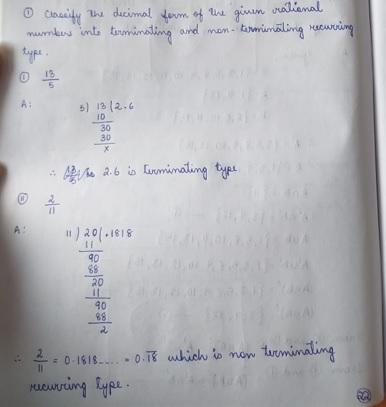 ① Classify the decimal form of the given rational
numbers into terminating and non-terminating recurring
type.
ⓘ 13/5
A: 5) 13 (2.6
10
30
30
x
∴ 2.6 is terminating type.
ⓘⓘ 2/11
A: 11) 20 (.1818
11
90
88
20
11
90
88
2
∴ 2/11 = 0.1818..... = 0.1̅8̅ which is non terminating
recurring type.